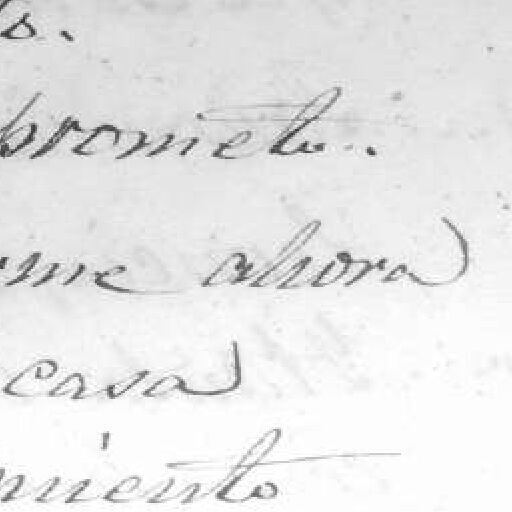 prometo..
me ahora
casa
miento